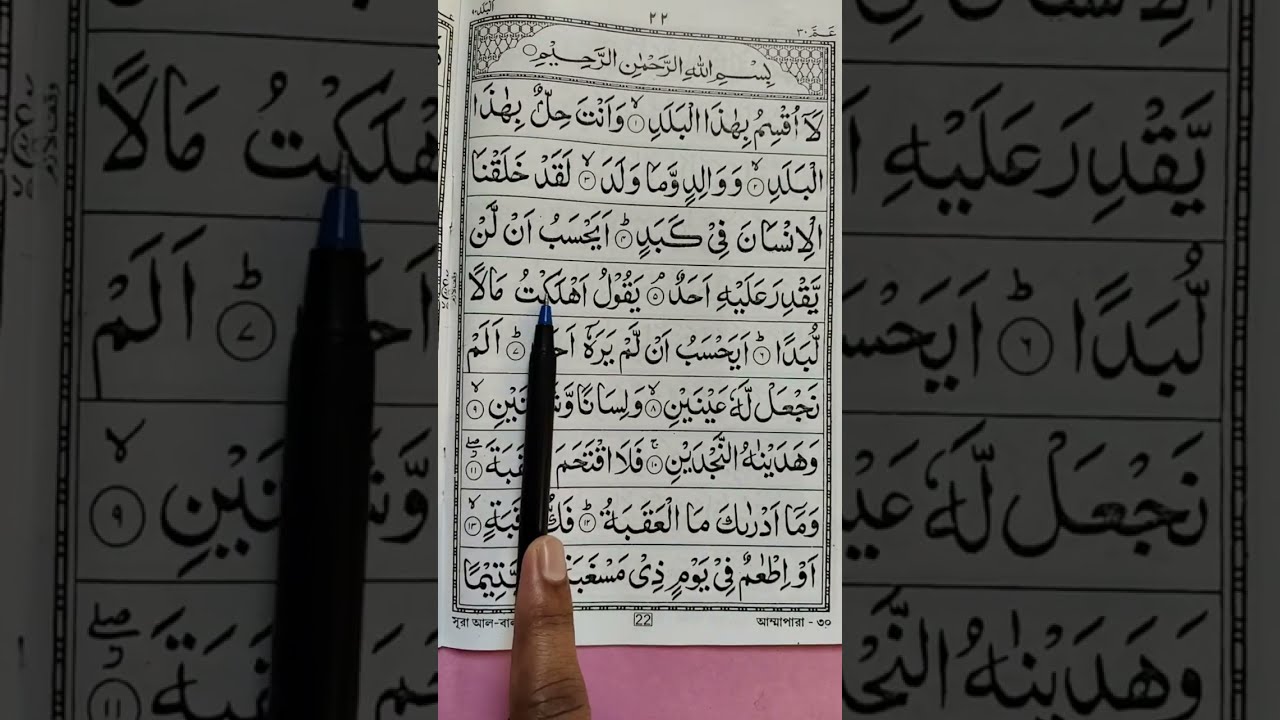 البلد ٩٠ ٢٢ عَمَّ ٣٠
بِسْمِ اللّٰهِ الرَّحْمٰنِ الرَّحِيْمِ
لَاۤ اُقْسِمُ بِهٰذَا الْبَلَدِ ۙ﴿١﴾ وَاَنْتَ حِلٌّۢ بِهٰذَا
الْبَلَدِ ۙ﴿٢﴾ وَوَالِدٍ وَّمَا وَلَدَ ۙ﴿٣﴾ لَقَدْ خَلَقْنَا
الْاِنْسَانَ فِيْ كَبَدٍ ؕ﴿٤﴾ اَيَحْسَبُ اَنْ لَّنْ
يَّقْدِرَ عَلَيْهِ اَحَدٌ ۘ﴿٥﴾ يَقُوْلُ اَهْلَكْتُ مَالًا
لُّبَدًا ؕ﴿٦﴾ اَيَحْسَبُ اَنْ لَّمْ يَرَهٗۤ ؕ﴿٧﴾ اَلَمْ
نَجْعَلْ لَّهٗ عَيْنَيْنِ ۙ﴿٨﴾ وَلِسَانًا ۙ﴿٩﴾
وَهَدَيْنٰهُ النَّجْدَيْنِ ۚ﴿١٠﴾ فَلَا اقْتَحَمَ ﴿١١﴾
وَمَاۤ اَدْرٰىكَ مَا الْعَقَبَةُ ؕ﴿١٢﴾ فَكُّ ۙ﴿١٣﴾
اَوْ اِطْعٰمٌ فِيْ يَوْمٍ ذِيْ يَّتِيْمًا
সূরা আল- 22 আম্মাপারা - ৩০